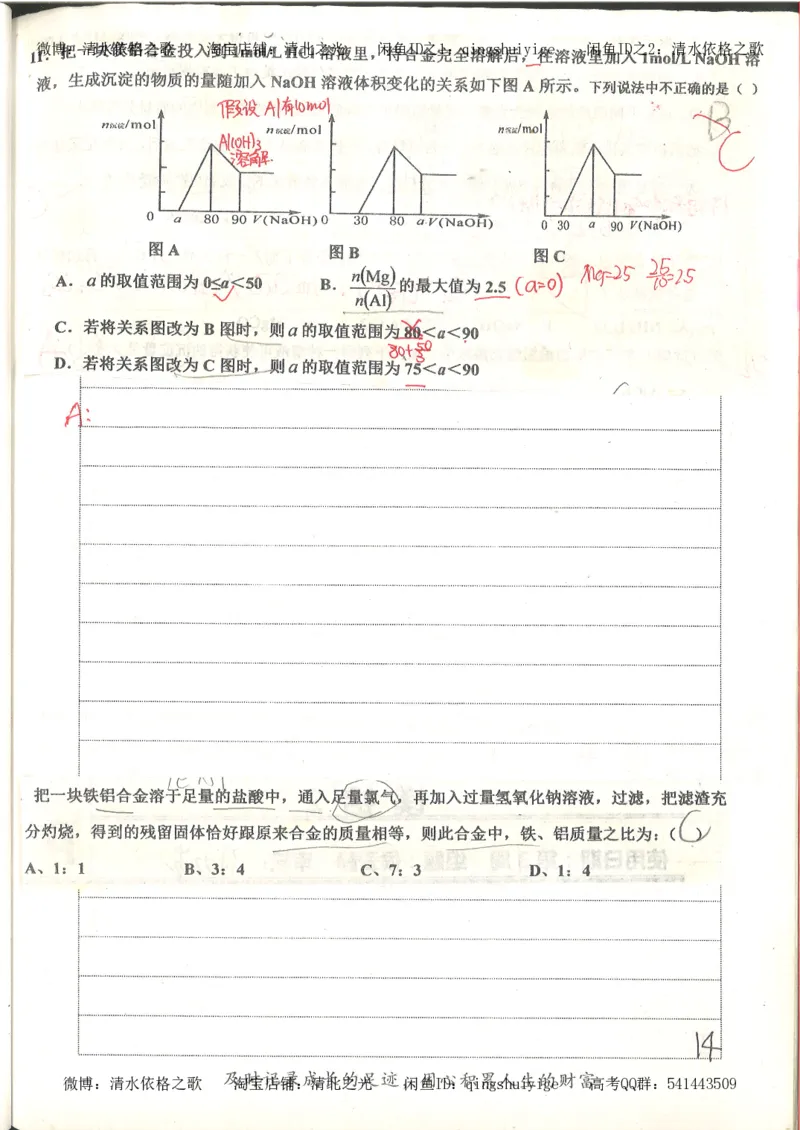 微博：清水依格之歌 淘宝店铺：清北之光 闲鱼ID之1：qingshuiyige 闲鱼ID之2：清水依格之歌
11．把一块镁铝合金投入到1mol/L HCl 溶液里，待合金完全溶解后，往溶液里加入 1mol/L NaOH 溶
液，生成沉淀的物质的量随加入 NaOH 溶液体积变化的关系如下图 A 所示。下列说法中不正确的是（ ）
B
C
假设Al有10mol
n沉淀/mol n沉淀/mol n沉淀/mol
Al(OH)3
溶解
0 a 80 90 V(NaOH) 0 30 80 a V(NaOH) 0 30 a 90 V(NaOH)
图 A 图 B 图 C
A．a的取值范围为 0≤a＜50 B．n(Mg)/n(Al) 的最大值为 2.5 (a=0) 25/10=2.5
C．若将关系图改为 B 图时，则a的取值范围为 80＜a＜90
80+50/3
D．若将关系图改为 C 图时，则a的取值范围为 75＜a＜90
A:
把一块铁铝合金溶于足量的盐酸中，通入足量氯气，再加入过量氢氧化钠溶液，过滤，把滤渣充
分灼烧，得到的残留固体恰好跟原来合金的质量相等，则此合金中，铁、铝质量之比为：（C）
A、1：1 B、3：4 C、7：3 D、1：4
14
及时记录成长的足迹 用心积累人生的财富
微博：清水依格之歌 淘宝店铺：清北之光 闲鱼ID：qingshuiyige 高考QQ群：541443509